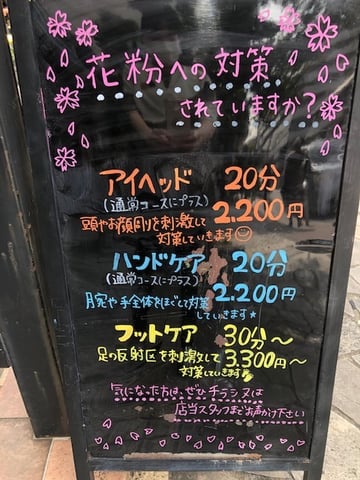 花粉への対策
されていますか?
アイヘッド 20分
(通常コースにプラス) 2.200円
頭やお顔周りを刺激して
対策していきます
ハンドケア 20分
(通常コースにプラス) 2.200円
腕や手全体をほぐして対策
していきます
フットケア 30分〜
足の反射区を刺激して 3300円〜
対策していきます
気になった方は、ぜひチラシ又は
店当スタッフまでお声がけ下さい